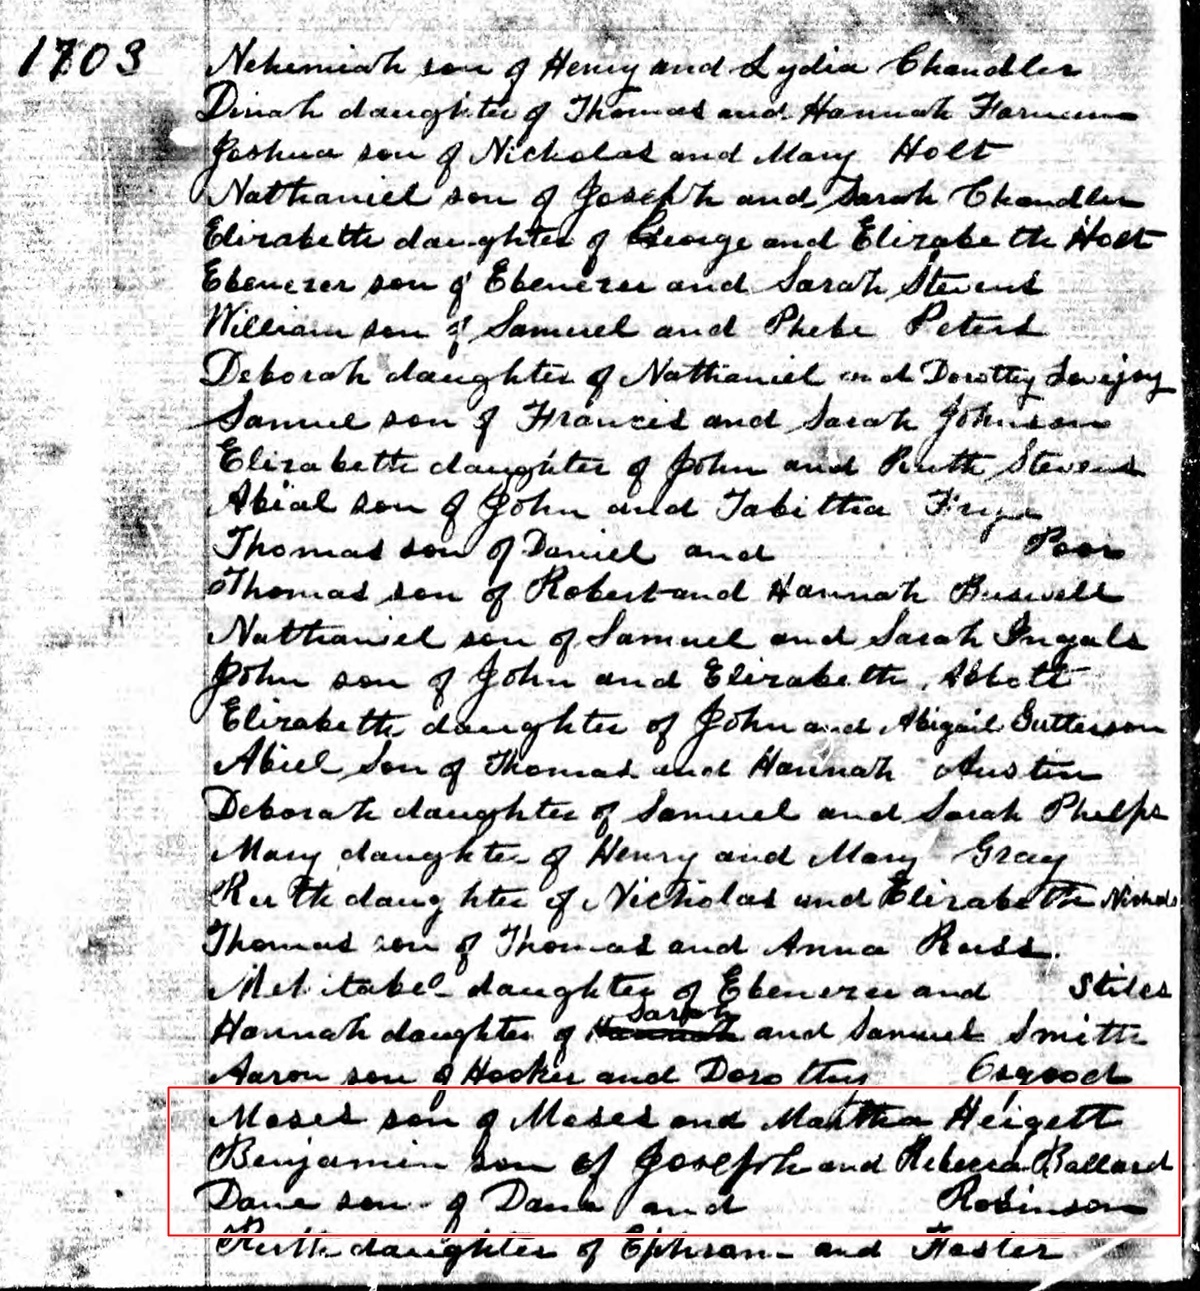 1703
Nehemiah son of Henry and Lydia Chandler
Dinah daughter of Thomas and Hannah Farnum
Joshua son of Nicholas and Mary Holt
Nathaniel son of Joseph and Sarah Chandler
Elizabeth daughter of George and Elizabeth Holt
Ebenezer son of Ebenezer and Sarah Stevens
William son of Samuel and Phebe Peters
Deborah daughter of Nathaniel and Dorothy Lovejoy
Samuel son of Francis and Sarah Johnson
Elizabeth daughter of John and Ruth Stevens
Abial son of John and Tabitha Frye
Thomas son of Daniel and Poor
Thomas son of Robert and Hannah Buswell
Nathaniel son of Samuel and Sarah Ingals
John son of John and Elizabeth Abbott
Elizabeth daughter of John and Abigail Gutterson
Abiel Son of Thomas and Hannah Austin
Deborah daughter of Samuel and Sarah Phelps
Mary daughter of Henry and Mary Gray
Ruth daughter of Nicholas and Elizabeth
Thomas son of Thomas and Anna Russ.
Mehitabel daughter of Ebenezer and Stiles
Sarah
Hannah daughter of Hannah and Samuel Smith
Aaron son of Hooker and Dorothy Osgood
Moses son of Moses and Martha Heigett
Benjamin son of Joseph and Rebecca Ballard
Dane son of Dane and Robinson
Ruth daughter of Ephraim and Foster